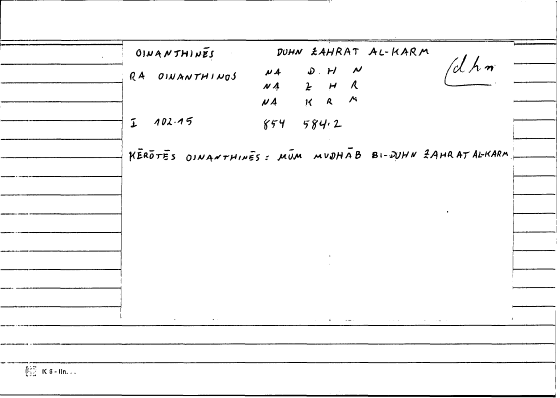 OINANTHINĒS DUHN ŻAHRAT AL-KARM
RA OINANTHINOS NA D.HN (dhn
NA ŻHR
NA KRM
I 102.15 854 584.2
KĒRŌTĒS OINANTHINĒS = MŪM MUDHĀB BI-DUHN ŻAHRAT AL-KARM
K 6 - lin...